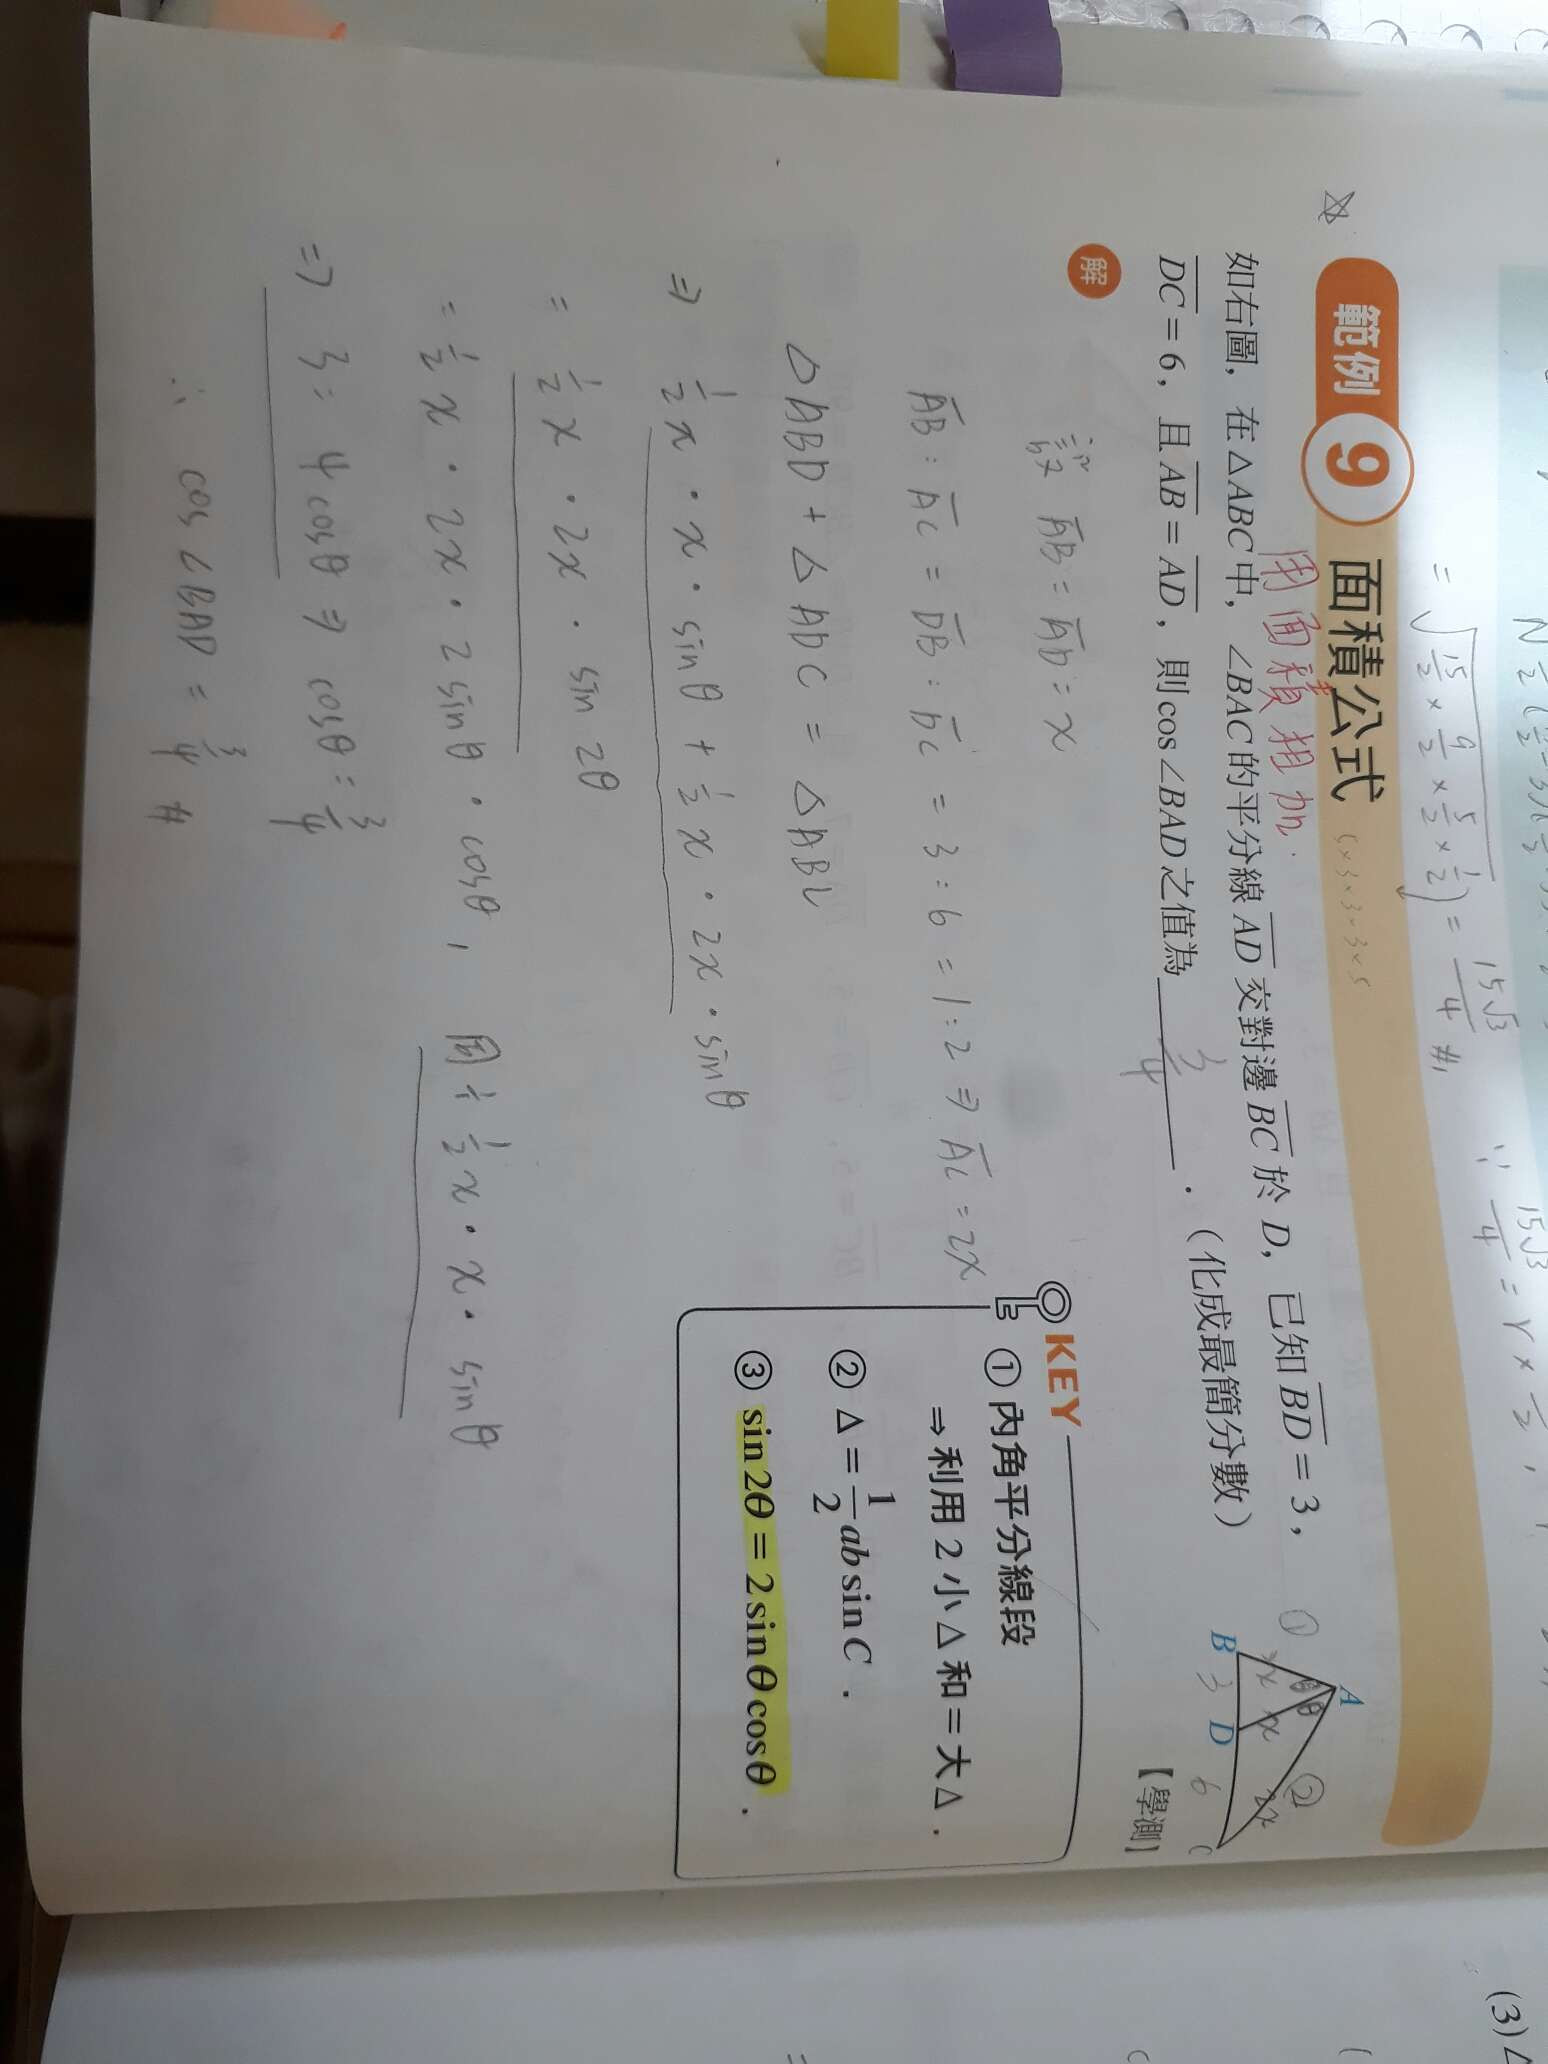 = √(15/2 × 9/2 × 5/2 × 1/2) = 15√3/4 #,
∵ 15√3/4 = r ×
☆ 範例 9 面積公式
5×3×3×3×5
用面積相加.
如右圖，在△ABC中，∠BAC的平分線AD交對邊BC於D，已知BD=3，
DC=6，且AB=AD，則cos∠BAD之值為 3/4 ．（化成最簡分數）
【學測】
① ②
A
B D C
θ θ
x x 2x
3 6
解
設 AB = AD = x
AB : AC = DB : DC = 3 : 6 = 1 : 2 ⇒ AC = 2x
△ABD + △ADC = △ABC
⇒ 1/2 x · x · sinθ + 1/2 x · 2x · sinθ
= 1/2 x · 2x · sin 2θ
= 1/2 x · 2x · 2sinθ · cosθ , 同÷ 1/2 x · x · sinθ
⇒ 3 = 4cosθ ⇒ cosθ = 3/4
∴ cos∠BAD = 3/4 #
KEY
① 內角平分線段
⇒利用2小△和=大△．
② △=1/2 ab sin C．
③ sin2θ=2sinθcosθ．
(3)△